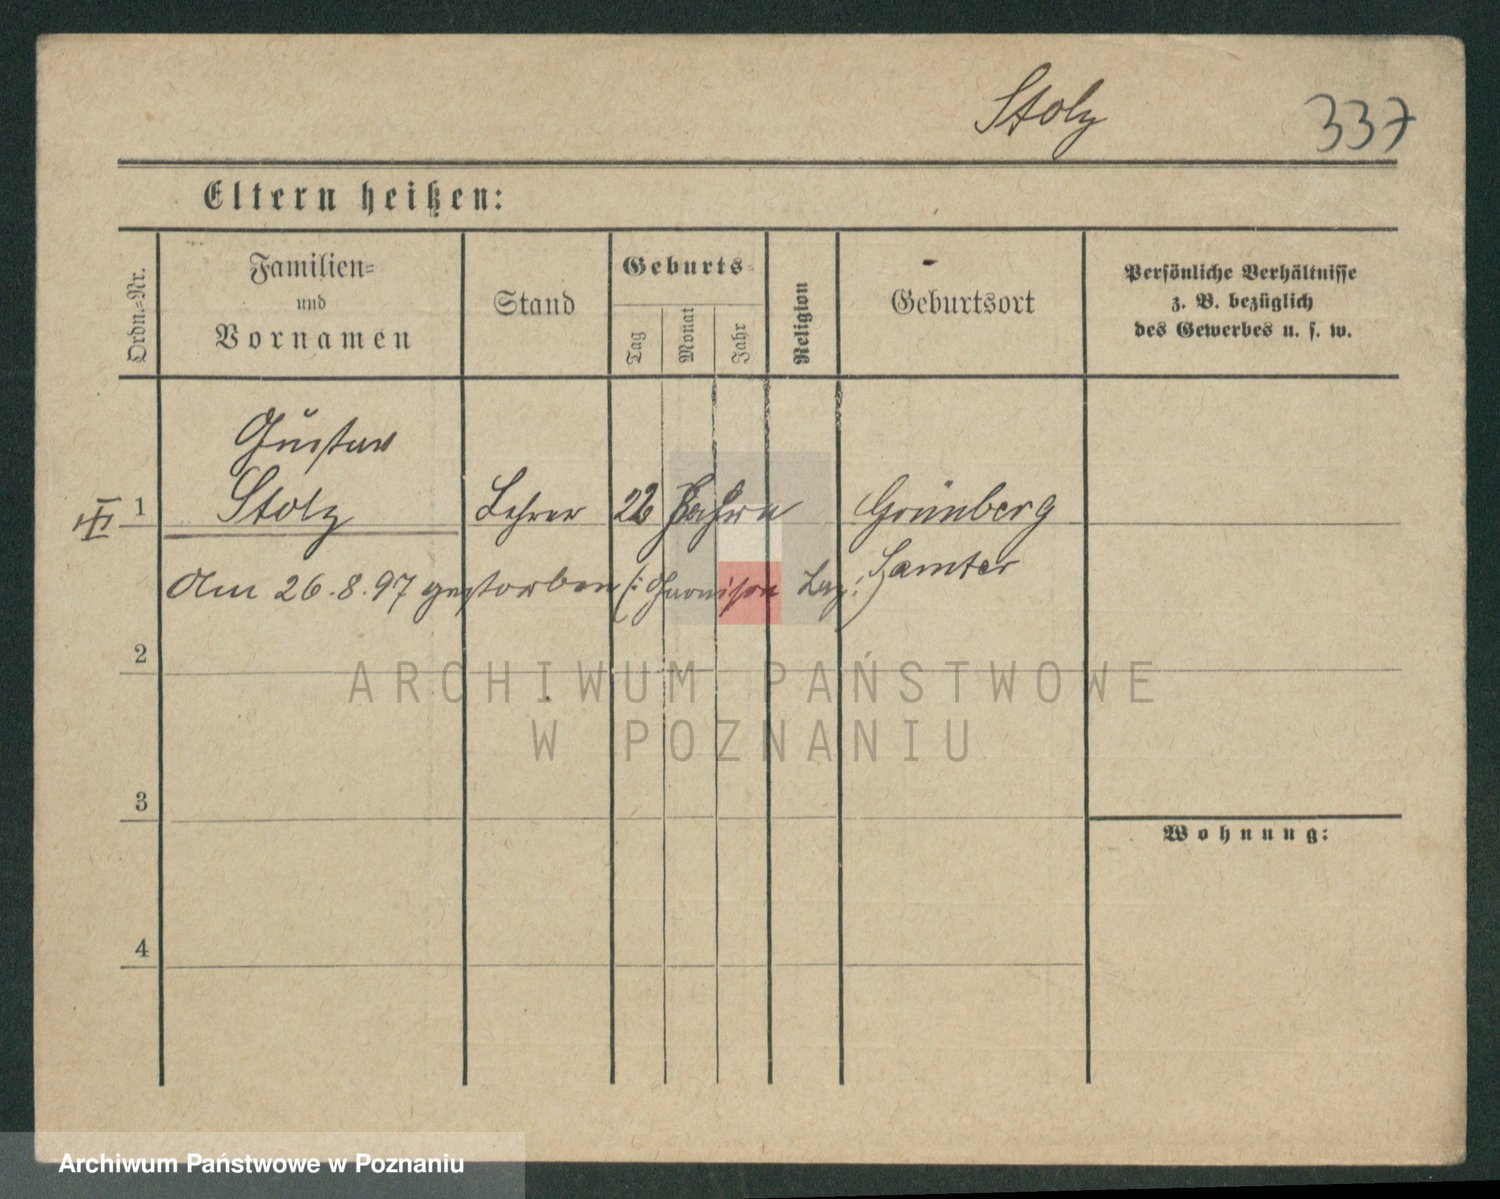 Stolz
337
Eltern heißen:
Ordn.-Nr.
Familien-
und
Vornamen
Stand
Geburts-
Tag
Monat
Jahr
Religion
Geburtsort
Persönliche Verhältnisse
z. B. bezüglich
des Gewerbes u. s. w.
Gustav
III 1 Stolz Lehrer 22 Jahre Grünberg
Samter
Am 26.8.97 gestorben (: Garnison Laz :)
2
ARCHIWUM PAŃSTWOWE
W POZNANIU
3
Wohnung:
4
Archiwum Państwowe w Poznaniu